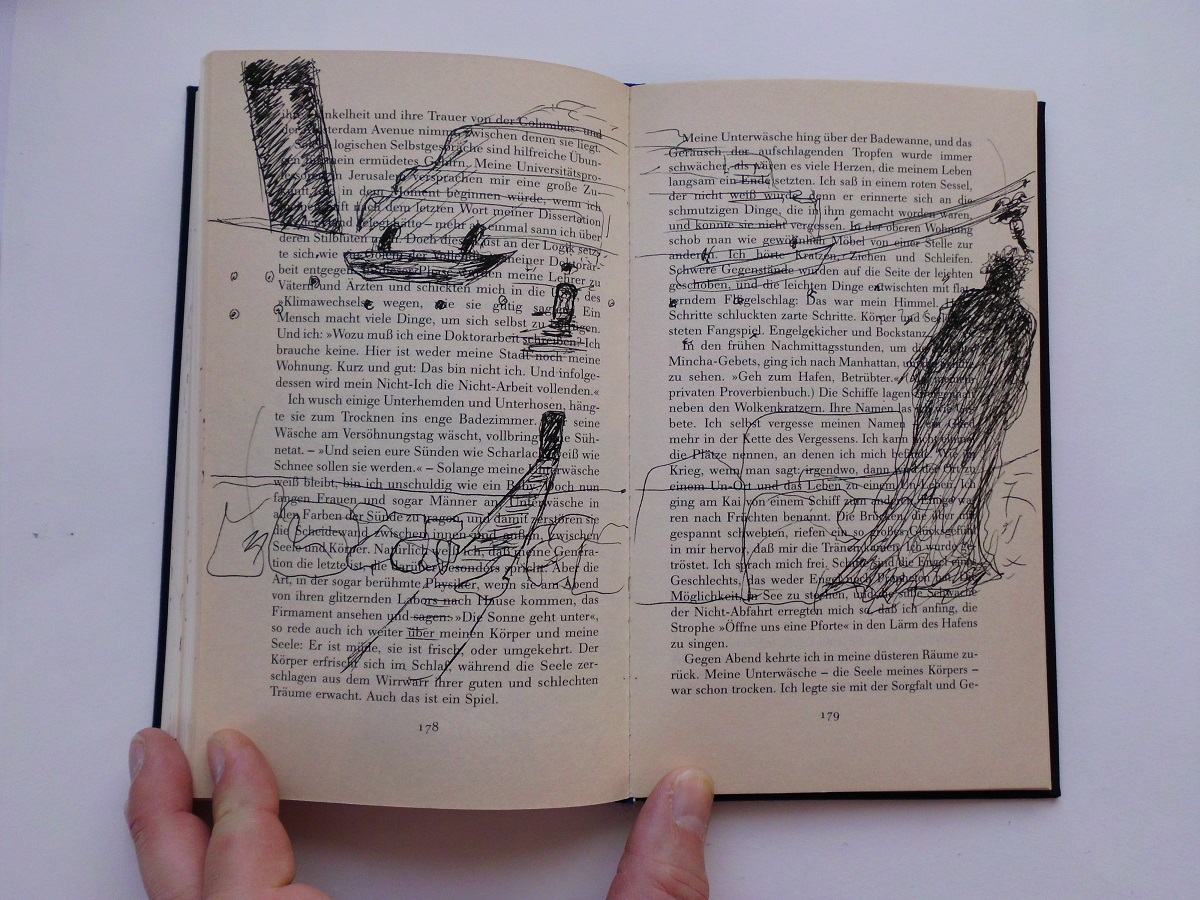 Dunkelheit und ihre Trauer von der Columbus- und
der Amsterdam Avenue nimmt, zwischen denen sie liegt.
Solche logischen Selbstgespräche sind hilfreiche Übun-
gen für mein ermüdetes Gehirn. Meine Universitätspro-
fessoren in Jerusalem versprachen mir eine große Zu-
kunft, die in dem Moment beginnen würde, wenn ich
nach dem letzten Wort meiner Dissertation
gelegt hätte – mehr als einmal sann ich über
deren Stilblüten Doch die Lust an der Logik setz-
te sich wie meiner Doktorar-
beit entgegen meine Lehrer zu
Vätern und Ärzten und schickten mich in die des
»Klimawechsels« wegen, wie sie gütig Ein
Mensch macht viele Dinge, um sich selbst zu
Und ich: »Wozu muß ich eine Doktorarbeit schreiben? Ich
brauche keine. Hier ist weder meine Stadt noch meine
Wohnung. Kurz und gut: Das bin nicht ich. Und infolge-
dessen wird mein Nicht-Ich die Nicht-Arbeit vollenden.«
Ich wusch einige Unterhemden und Unterhosen, häng-
te sie zum Trocknen ins enge Badezimmer. seine
Wäsche am Versöhnungstag wäscht, vollbringt die Süh-
netat. – »Und seien eure Sünden wie Scharlach, weiß wie
Schnee sollen sie werden.« – Solange meine Unterwäsche
weiß bleibt, bin ich unschuldig wie ein Baby. Doch nun
fangen Frauen und sogar Männer an, Unterwäsche in
allen Farben der Sünde zu tragen, und damit zerstören sie
die Scheidewand zwischen innen und außen, zwischen
Seele und Körper. Natürlich weiß ich, daß meine Genera-
tion die letzte ist, die darüber besonders spricht. Aber die
Art, in der sogar berühmte Physiker, wenn sie am Abend
von ihren glitzernden Labors nach Hause kommen, das
Firmament ansehen und sagen: »Die Sonne geht unter«,
so rede auch ich weiter über meinen Körper und meine
Seele: Er ist müde, sie ist frisch, oder umgekehrt. Der
Körper erfrischt sich im Schlaf, während die Seele zer-
schlagen aus dem Wirrwarr ihrer guten und schlechten
Träume erwacht. Auch das ist ein Spiel.
178
Meine Unterwäsche hing über der Badewanne, und das
Geräusch der aufschlagenden Tropfen wurde immer
schwächer, als wären es viele Herzen, die meinem Leben
langsam ein Ende setzten. Ich saß in einem roten Sessel,
der nicht weiß wurde, denn er erinnerte sich an die
schmutzigen Dinge, die in ihm gemacht worden waren,
und konnte sie nicht vergessen. In der oberen Wohnung
schob man wie gewöhnlich Möbel von einer Stelle zur
anderen. Ich hörte Kratzen, Ziehen und Schleifen.
Schwere Gegenstände wurden auf die Seite der leichten
geschoben, und die leichten Dinge entwischten mit flat-
terndem Flügelschlag: Das war mein Himmel.
Schritte schluckten zarte Schritte. Körper und Seele
steten Fangspiel. Engelgekicher und Bockstanz.
In den frühen Nachmittagsstunden, um die
Mincha-Gebets, ging ich nach Manhattan, um
zu sehen. »Geh zum Hafen, Betrübter.«
privaten Proverbienbuch.) Die Schiffe lagen
neben den Wolkenkratzern. Ihre Namen las ich wie Ge-
bete. Ich selbst vergesse meinen Namen ein Glied
mehr in der Kette des Vergessens. Ich kann nicht einmal
die Plätze nennen, an denen ich mich befand. Wie im
Krieg, wenn man sagt: irgendwo, dann wird der Ort zu
einem Un-Ort und das Leben zu einem Un-Leben. Ich
ging am Kai von einem Schiff zum anderen. Einige wa-
ren nach Früchten benannt. Die Brücken, die über mir
gespannt schwebten, riefen ein so großes Glücksgefühl
in mir hervor, daß mir die Tränen kamen. Ich wurde ge-
tröstet. Ich sprach mich frei. Schiffe sind die Engel eines
Geschlechts, das weder Engel noch Propheten hat. Die
Möglichkeit, in See zu stechen, und die süße Schwäche
der Nicht-Abfahrt erregten mich so, daß ich anfing, die
Strophe »Öffne uns eine Pforte« in den Lärm des Hafens
zu singen.
Gegen Abend kehrte ich in meine düsteren Räume zu-
rück. Meine Unterwäsche – die Seele meines Körpers –
war schon trocken. Ich legte sie mit der Sorgfalt und Ge-
179